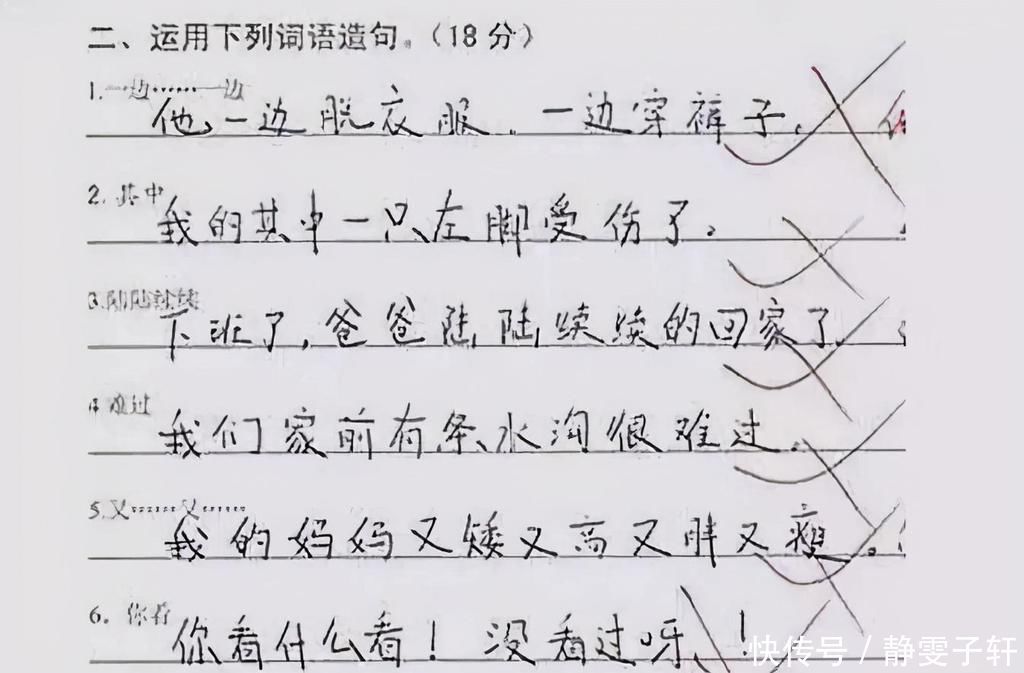 二、运用下列词语造句。(18分)
1.一边……一边
他一边脱衣服,一边穿裤子。
2.其中
我的其中一只左脚受伤了。
3.陆陆续续
下班了,爸爸陆陆续续的回家了。
4 难过
我们家前有条水沟很难过。
5.又……又……
我的妈妈又矮又高又胖又瘦。
6. 你看
你看什么看!没看过呀!
快传号 / 静雯子轩